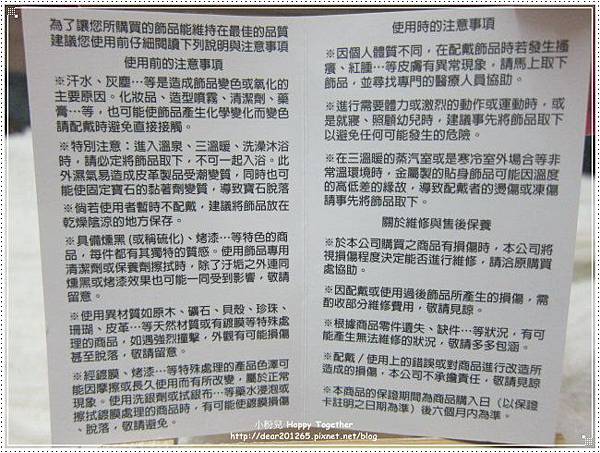 為了讓您所購買的飾品能維持在最佳的品質
建議您使用前仔細閱讀下列說明與注意事項
使用前的注意事項
※汗水、灰塵…等是造成飾品變色或氧化的
主要原因。化妝品、造型噴霧、清潔劑、藥
膏…等，也可能使飾品產生化學變化而變色
請配戴時避免直接接觸。
※特別注意：進入溫泉、三溫暖、洗澡沐浴
時，請必定將飾品取下，不可一起入浴。此
外濕氣易造成皮革製品受潮變質，同時也可
能使固定寶石的黏著劑變質，導致寶石脫落
※倘若使用者暫時不配戴，建議將飾品放在
乾燥陰涼的地方保存。
※具備燻黑(或稱硫化)、烤漆…等特色的商
品，每件都有其獨特的質感。使用飾品專用
清潔劑或保養劑擦拭時，除了汙垢之外連同
燻黑或烤漆效果也可能一同受到影響，敬請
留意。
※使用異材質如原木、礦石、貝殼、珍珠、
珊瑚、皮革…等天然材質或有鍍膜等特殊處
理的商品，如遇強烈撞擊，外觀有可能損傷
甚至脫落，敬請留意。
※經鍍膜、烤漆…等特殊處理的產品色澤可
能因摩擦或長久使用而有所改變，屬於正常
現象。使用洗銀劑或拭銀布…等藥水浸泡或
擦拭鍍膜處理的商品時，有可能使鍍膜損傷
、脫落，敬請避免。
使用時的注意事項
※因個人體質不同，在配戴飾品時若發生搔
癢、紅腫…等皮膚有異常現象，請馬上取下
飾品，並尋找專門的醫療人員協助。
※進行需要體力或激烈的動作或運動時，或
是就寢、照顧幼兒時，建議事先將飾品取下
以避免任何可能發生的危險。
※在三溫暖的蒸汽室或是寒冷室外場合等非
常溫環境時，金屬製的貼身飾品可能因溫度
的高低差的緣故，導致配戴者的燙傷或凍傷
請事先將飾品取下。
關於維修與售後保養
※於本公司購買之商品有損傷時，本公司將
視損傷程度決定能否進行維修，請洽原購買
處協助。
※因配戴或使用過後飾品所產生的損傷，需
酌收部分維修費用，敬請見諒。
※根據商品零件遺失、缺件…等狀況，有可
能產生無法維修的狀況，敬請多多包涵。
※配戴／使用上的錯誤或對商品進行改造所
造成的損傷，本公司不承擔責任，敬請見諒
※本商品的保證期間為商品購入日（以保證
卡註明之日期為準）後六個月內為準。
小粉兒 Happy Together
http://dear201265.pixnet.net/blog